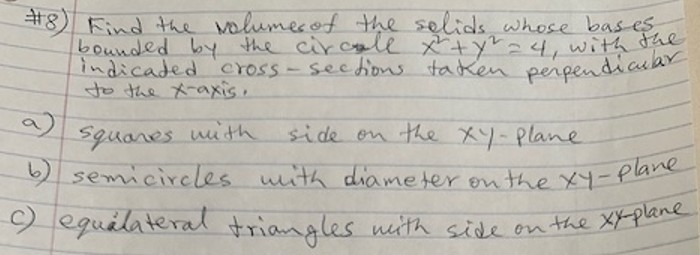 #8) Find the volumes of the solids whose bases
bounded by the circle x²+y²=4, with the
indicated cross-sections taken perpendicular
to the x-axis.
a) squares with side on the xy-plane
b) semicircles with diameter on the xy-plane
c) equilateral triangles with side on the xy-plane